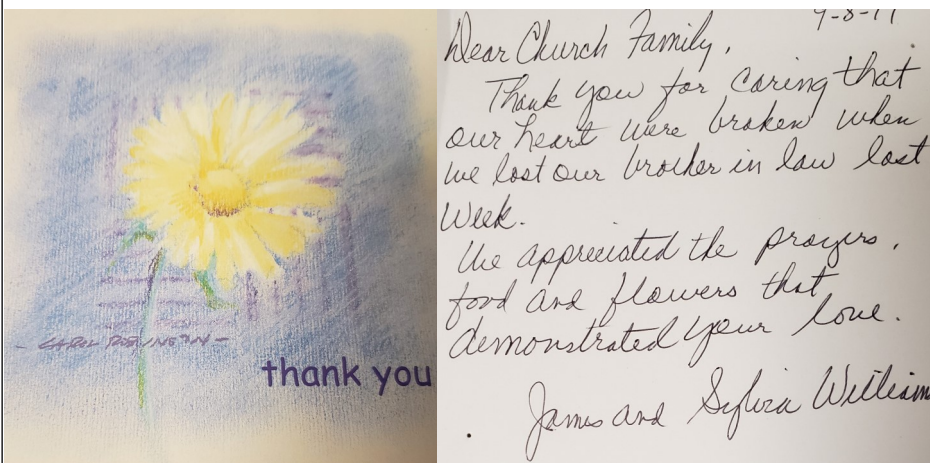 CAROL ROBINSON
thank you
9-8-17
Dear Church Family,
Thank you for caring that
our heart were broken when
we lost our brother in law last
Week.
We appreciated the prayers,
food and flowers that
demonstrated your love.
James and Sylvia William